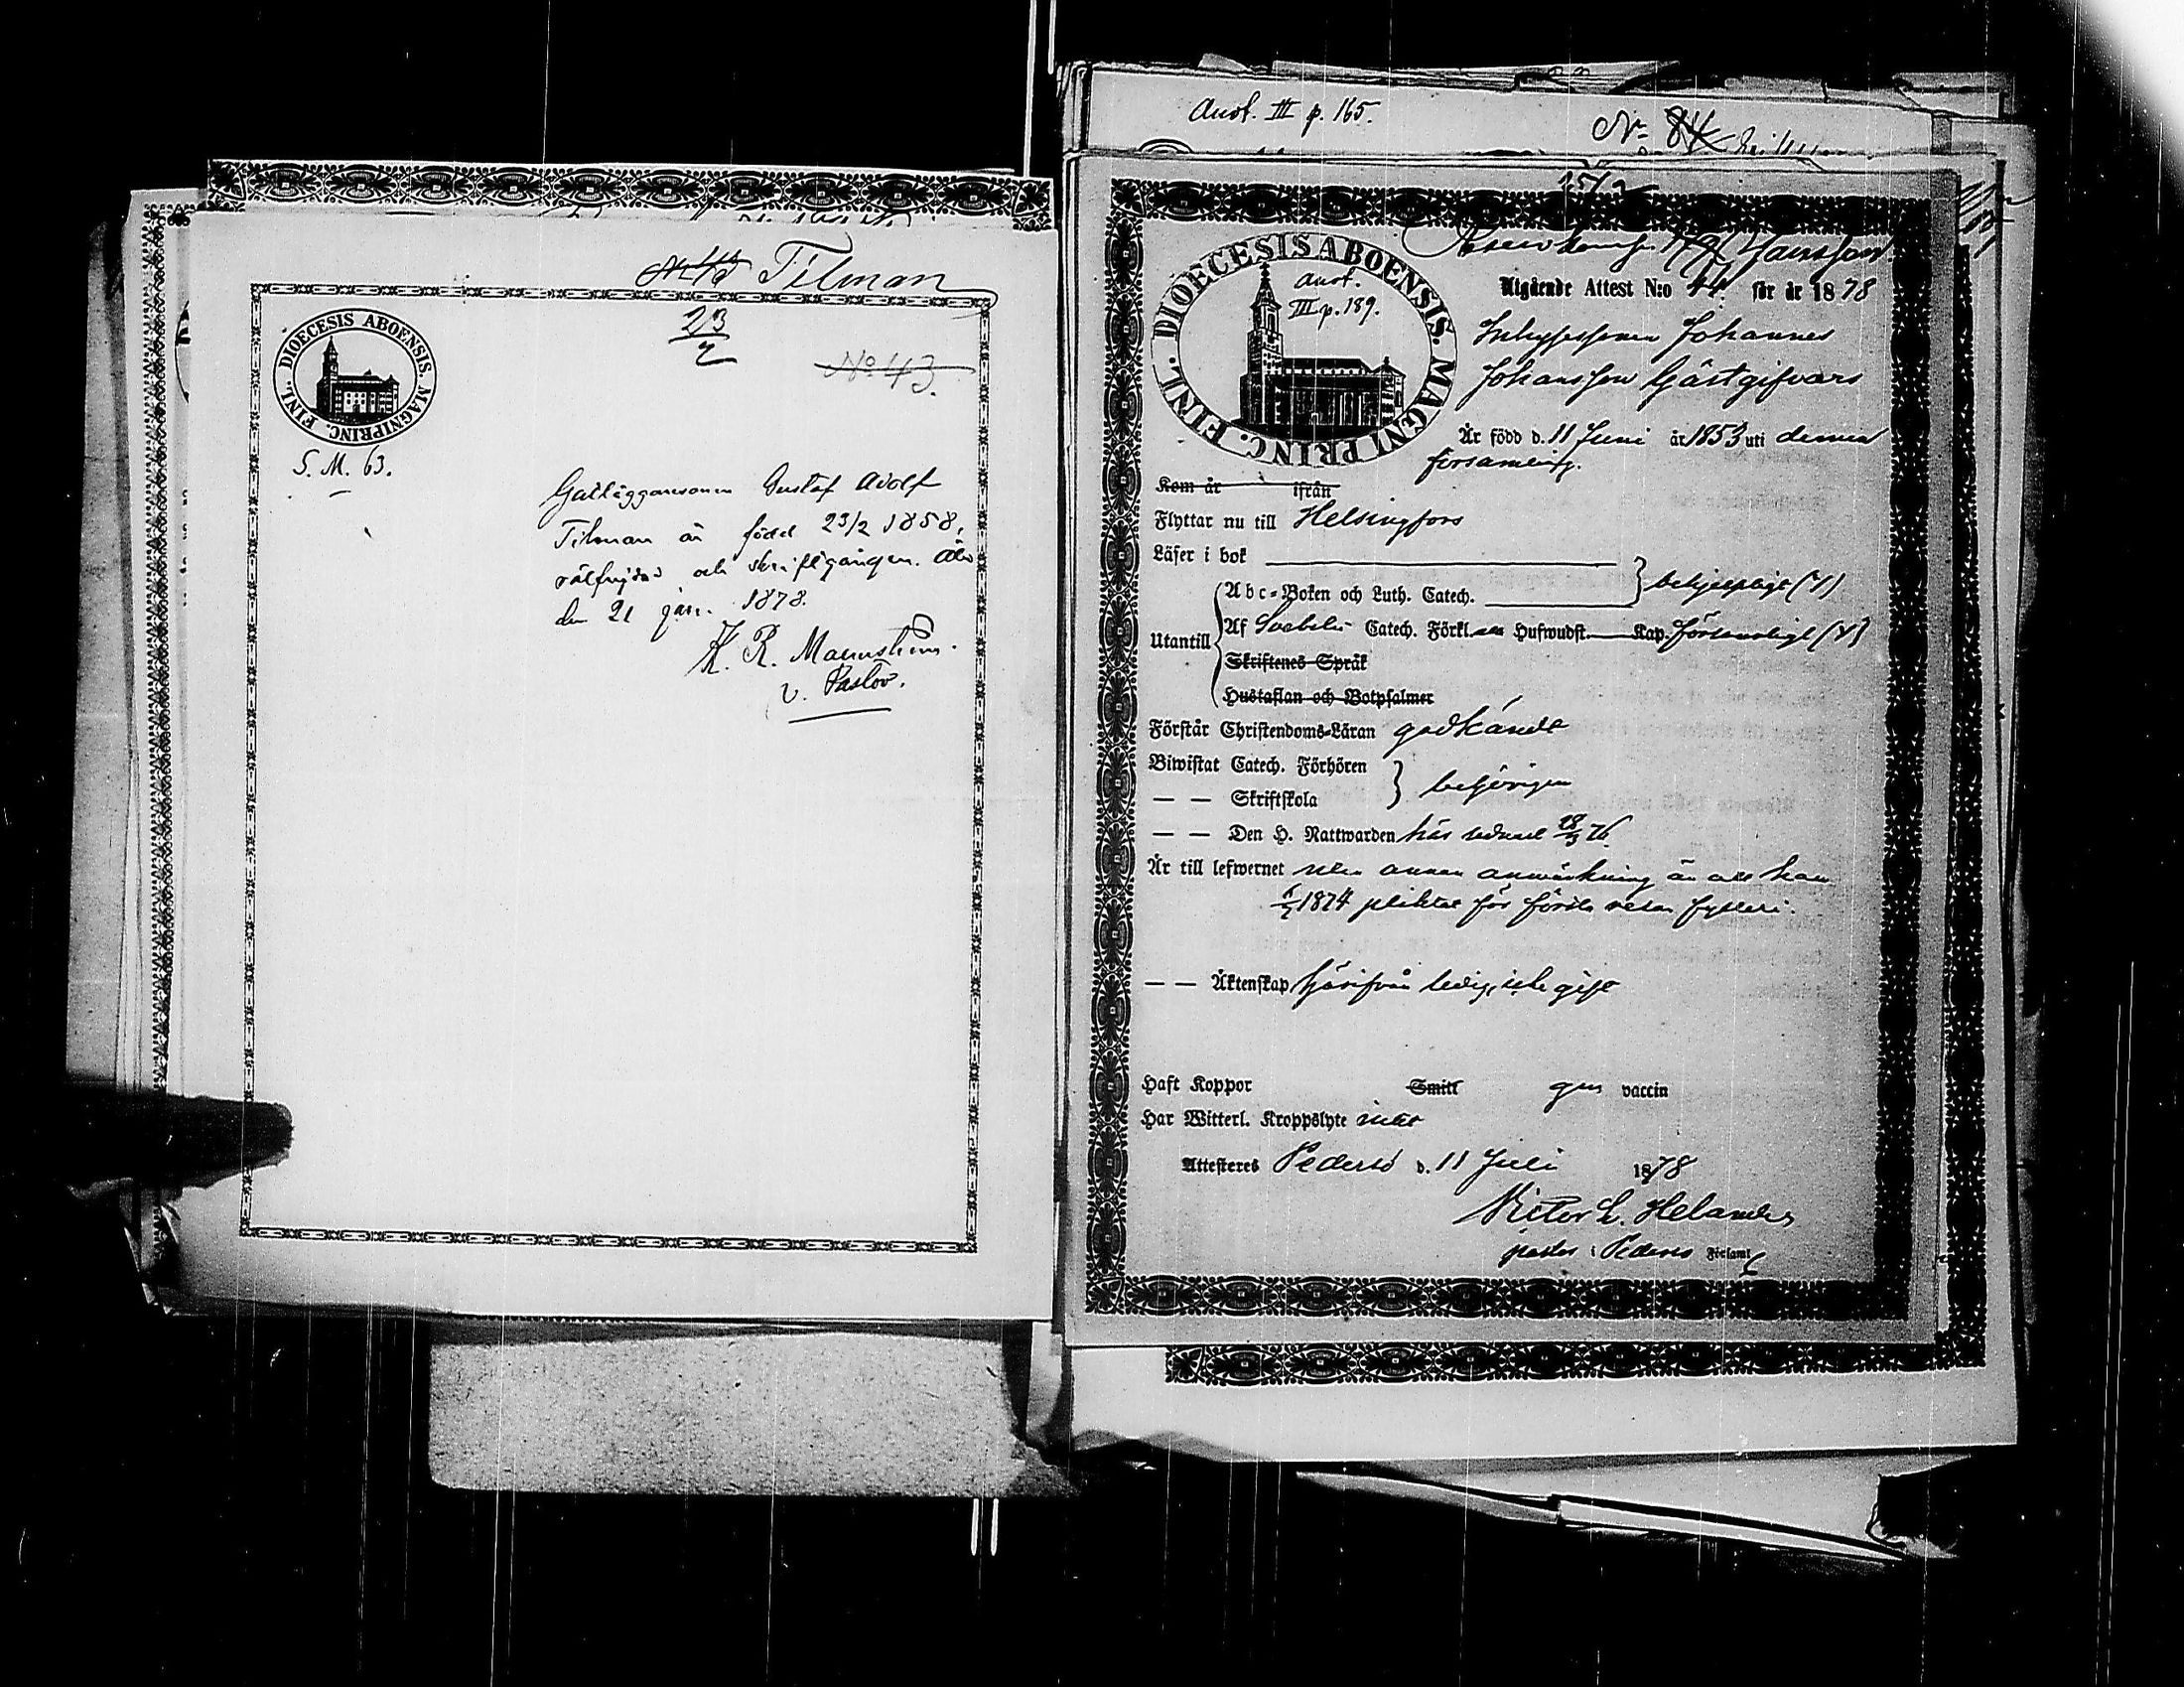 Tilman
23/2
No 43.
DIOECESIS ABOENSIS. MAGNI PRINC. FINL.
S. M. 63.
Gustaf Adolf
Tilman är född 23/2 1858,
och skriftgången.
den 21 jan. 1878.
K. R. Malmström.
v. Pastor.
Anot. III p. 165.
No 84
Jansson
DIOECESIS ABOENSIS. MAGNI PRINC. FINL.
Anot.
III p. 189.
Utgående Attest N:o 44 för år 1878
Inhysessonen Johannes
Johansson Gästgifvars
Är född d. 11 Juni år 1853 uti denna
församling.
Kom år ifrån
Flyttar nu till Helsingfors
Läser i bok
Abc-Boken och Luth. Catech. behjelpligt (V)
Utantill Af Svebelii Catech. Förkl. Hufwudst. Kap. försvarligt (V)
Skriftenes Språk
Hustaflan och Botpsalmer
Förstår Christendoms-Läran godkändt
Biwistat Catech. Förhören
— — Skriftskola behörigen
— — Den H. Nattwarden här sednast 18/3 76.
Är till lefwernet utan annan anmärkning än att han
1874 pliktat för första resan fylleri.
— — Äktenskap härifrån ledig, icke gift
Haft Koppor Smitt gm vaccin
Har Witterl. Kroppslyte intet
Attesteres Pedersö d. 11 Juli 1878
Victor L. Helander
pastor i Pedersö Förlaml